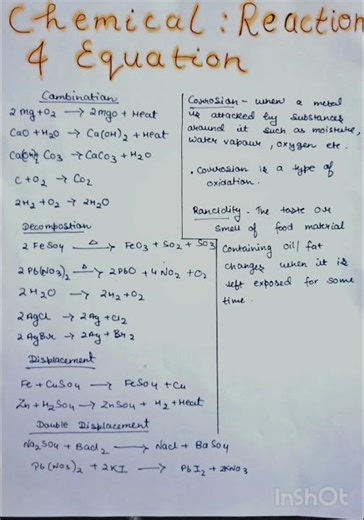 Chemical : Reaction
& Equation
Combination
2 mg + O2 → 2mgo + Heat
CaO + H2O → Ca(OH)2 + Heat
CO3 → CaCO3 + H2O
C + O2 → CO2
2H2 + O2 → 2H2O
Decompostion
2 FeSO4 △→ FeO3 + SO2 + SO3
2 Pb(NO3)2 △→ 2PbO + 4NO2 + O2
2H2O → 2H2 + O2
2AgCl → 2Ag + Cl2
2AgBr → 2Ag + Br2
Displacement
Fe + CuSO4 → FeSO4 + Cu
Zn + H2SO4 → ZnSO4 + H2 + Heat
Double Displacement
Na2SO4 + Bacl2 → Nacl + BaSO4
Pb(NO3)2 + 2KI → PbI2 + 2KNO3
Corrosian - when a metal
is attacked by substances
around it such as moisture,
water vapour, oxygen etc.
• Corrosian is a type of
oxidation.
Rancidity - The taste or
smell of food material
containing oil/fat
changes when it is
left exposed for some
time.
InShOt